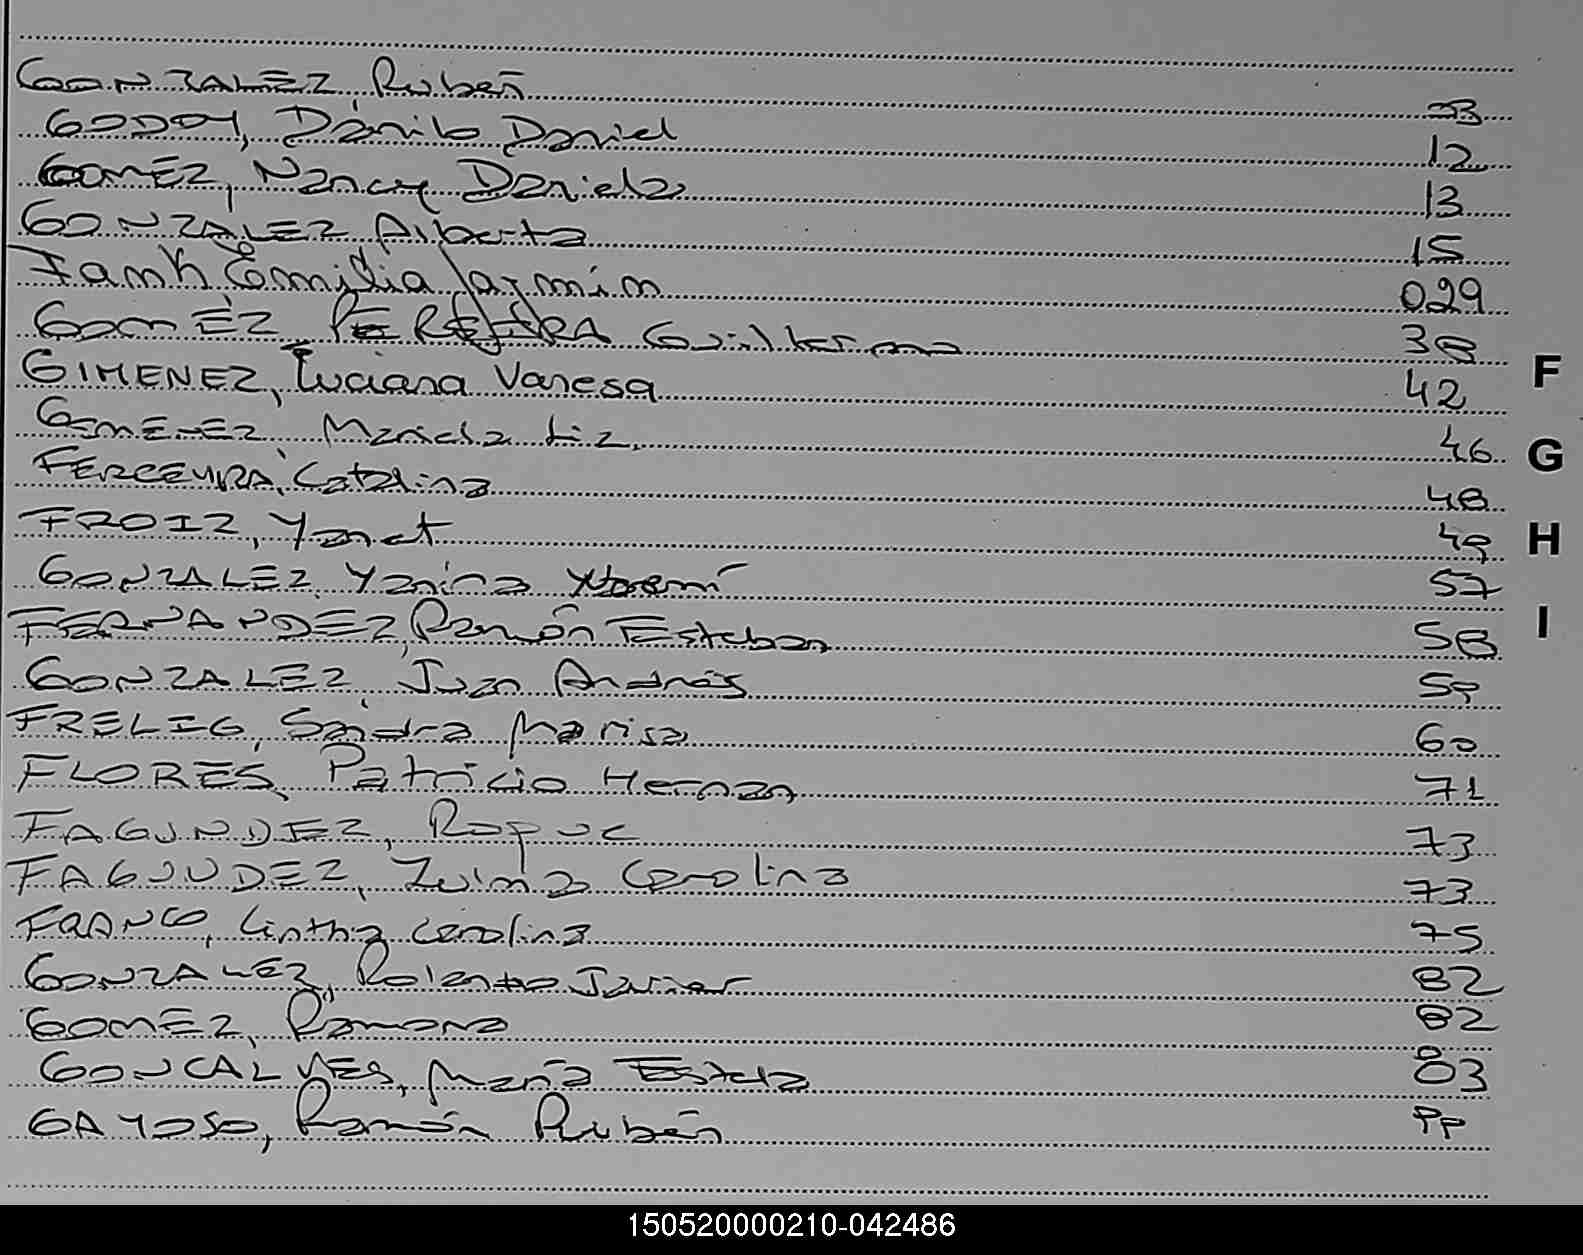 GONZALEZ, Rubén 33
GODOY, Danilo Daniel 12
GOMEZ, Nancy Daniela 13
GONZALEZ Alberto 15
Fank Emilia Jazmín 029
GOMEZ PEREIRA Guillermo 38
GIMENEZ, Luciana Vanesa 42
F
GIMENEZ Mariela Liz 46
G
FERREYRA, Catalina 48
FROIZ, Yanet 49
H
GONZALEZ Yanina Noemí 57
FERNANDEZ, Ramón Esteban 58
I
GONZALEZ Juan Andrés 59
FRELIG, Sandra Marisa 60
FLORES, Patricio Hernan 71
FAGUNDEZ, Roque 73
FAGUNDEZ, Zulma Carolina 73
FRANCO, Cinthia Carolina 75
GONZALEZ, Rolando Javier 82
GOMEZ, Ramona 82
GONCALVES, María Estela 83
GAYOSO, Ramón Rubén
150520000210-042486